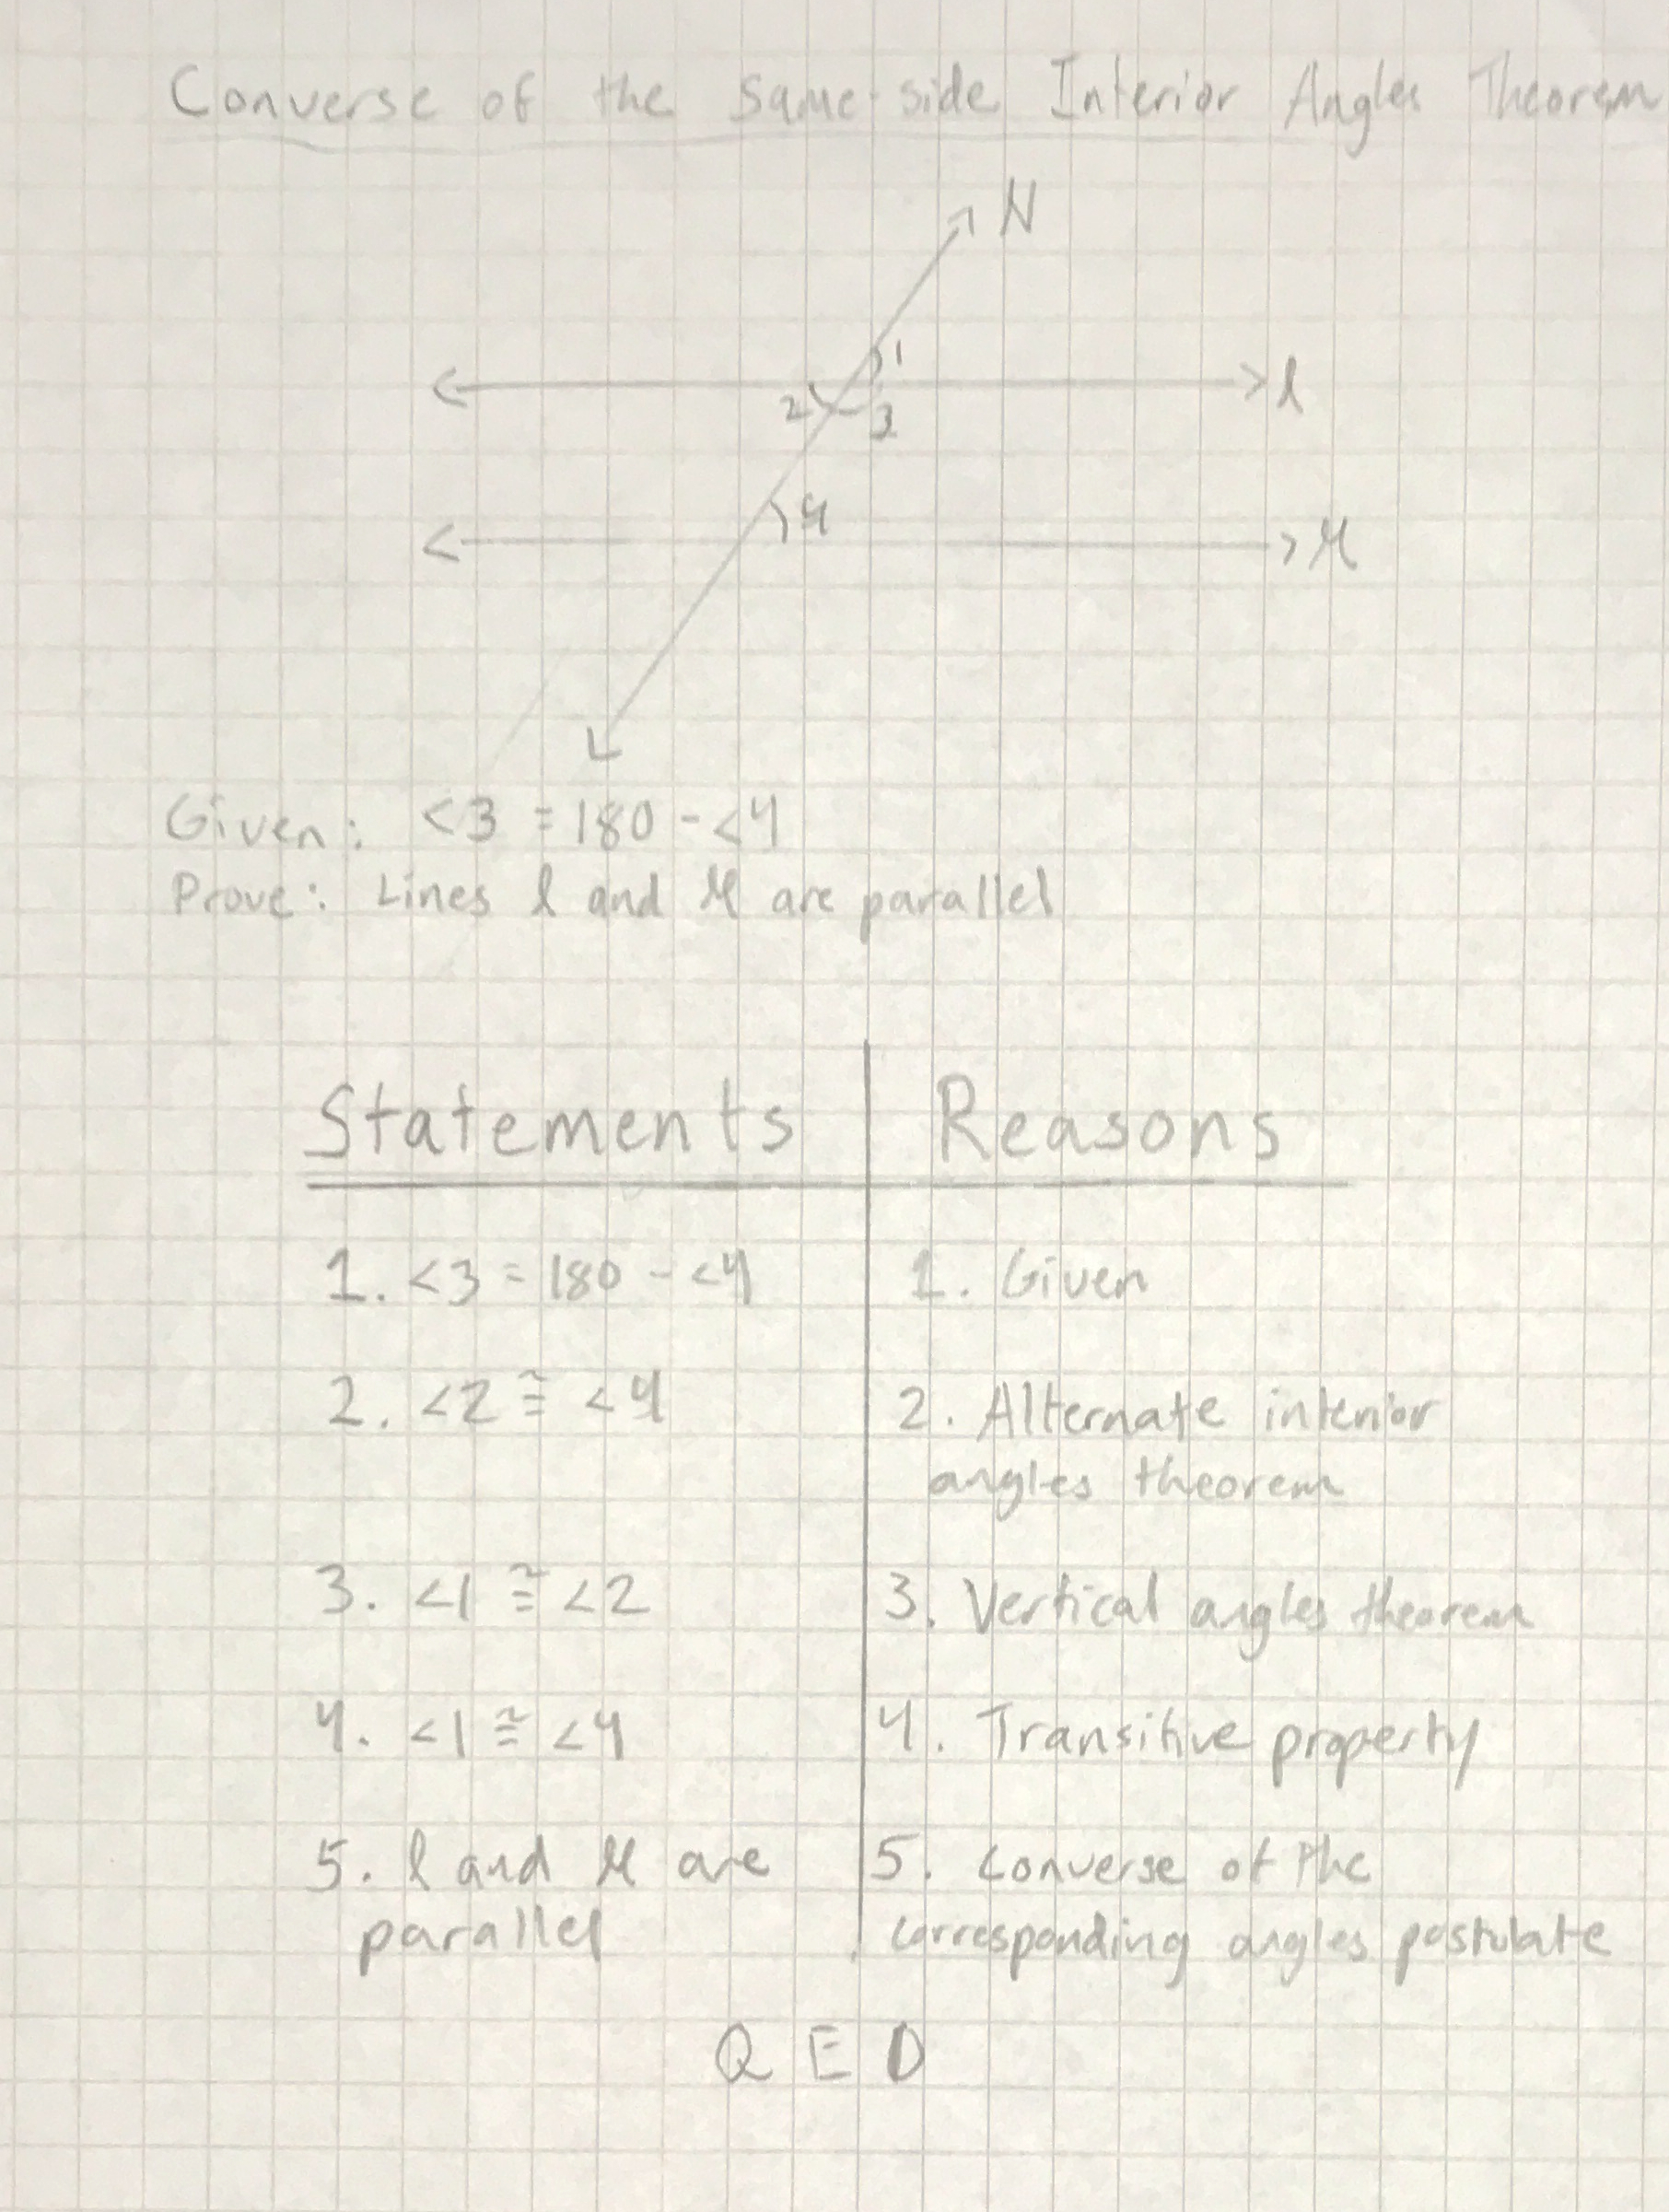 Converse of the Same-side Interior Angles Theorem
N
1
l
2
3
4
M
Given: <3 = 180 - <4
Prove: Lines l and M are parallel
Statements Reasons
1. <3 = 180 - <4 1. Given
2. <2 ≅ <4 2. Alternate interior
angles theorem
3. <1 ≅ <2 3. Vertical angles theorem
4. <1 ≅ <4 4. Transitive property
5. l and M are 5. Converse of the
parallel corresponding angles postulate
QED